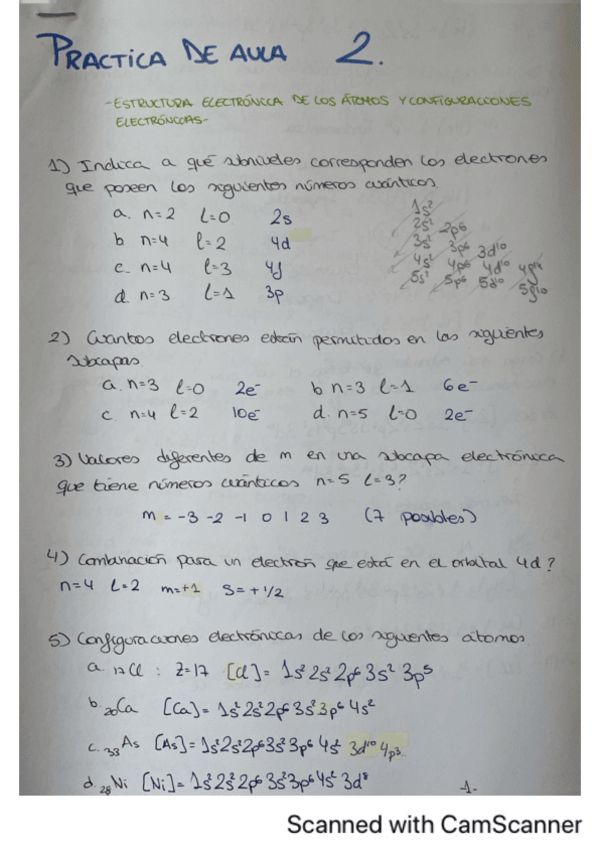 PRACTICA DE AULA 2.
-ESTRUCTURA ELECTRÓNICA DE LOS ÁTMOS Y CONFIGURACIONES
ELECTRÓNICAS-
1) Indica a qué subniveles corresponden los electrones
que poseen los siguientes números cuánticos.
a. n=2 l=0 2s
b n=4 l=2 4d
c. n=4 l=3 4f
d. n=3 l=1 3p
1s²
2s² 2p⁶
3s² 3p⁶ 3d¹⁰
4s² 4p⁶ 4d¹⁰ 4f¹⁴
5s² 5p⁶ 5d¹⁰
2) Cuantos electrones están permitidos en las siguientes
subcapas.
a. n=3 l=0 2e⁻ b n=3 l=1 6e⁻
c. n=4 l=2 10e⁻ d. n=5 l=0 2e⁻
3) Valores diferentes de m en una subcapa electrónica
que tiene números cuánticos n=5 l=3?
m = -3 -2 -1 0 1 2 3 (7 posibles)
4) Combinación para un electron que está en el orbital 4d?
n=4 l=2 m=+1 s=+1/2
5) Configuraciones electrónicas de los siguientes átomos
a. ₁₇Cl : Z=17 [Cl]= 1s² 2s² 2p⁶ 3s² 3p⁵
b. ₂₀Ca [Ca]= 1s² 2s² 2p⁶ 3s² 3p⁶ 4s²
c. ₃₃As [As]= 1s² 2s² 2p⁶ 3s² 3p⁶ 4s² 3d¹⁰ 4p³
d. ₂₈Ni [Ni]= 1s² 2s² 2p⁶ 3s² 3p⁶ 4s² 3d⁸
-1-
Scanned with CamScanner